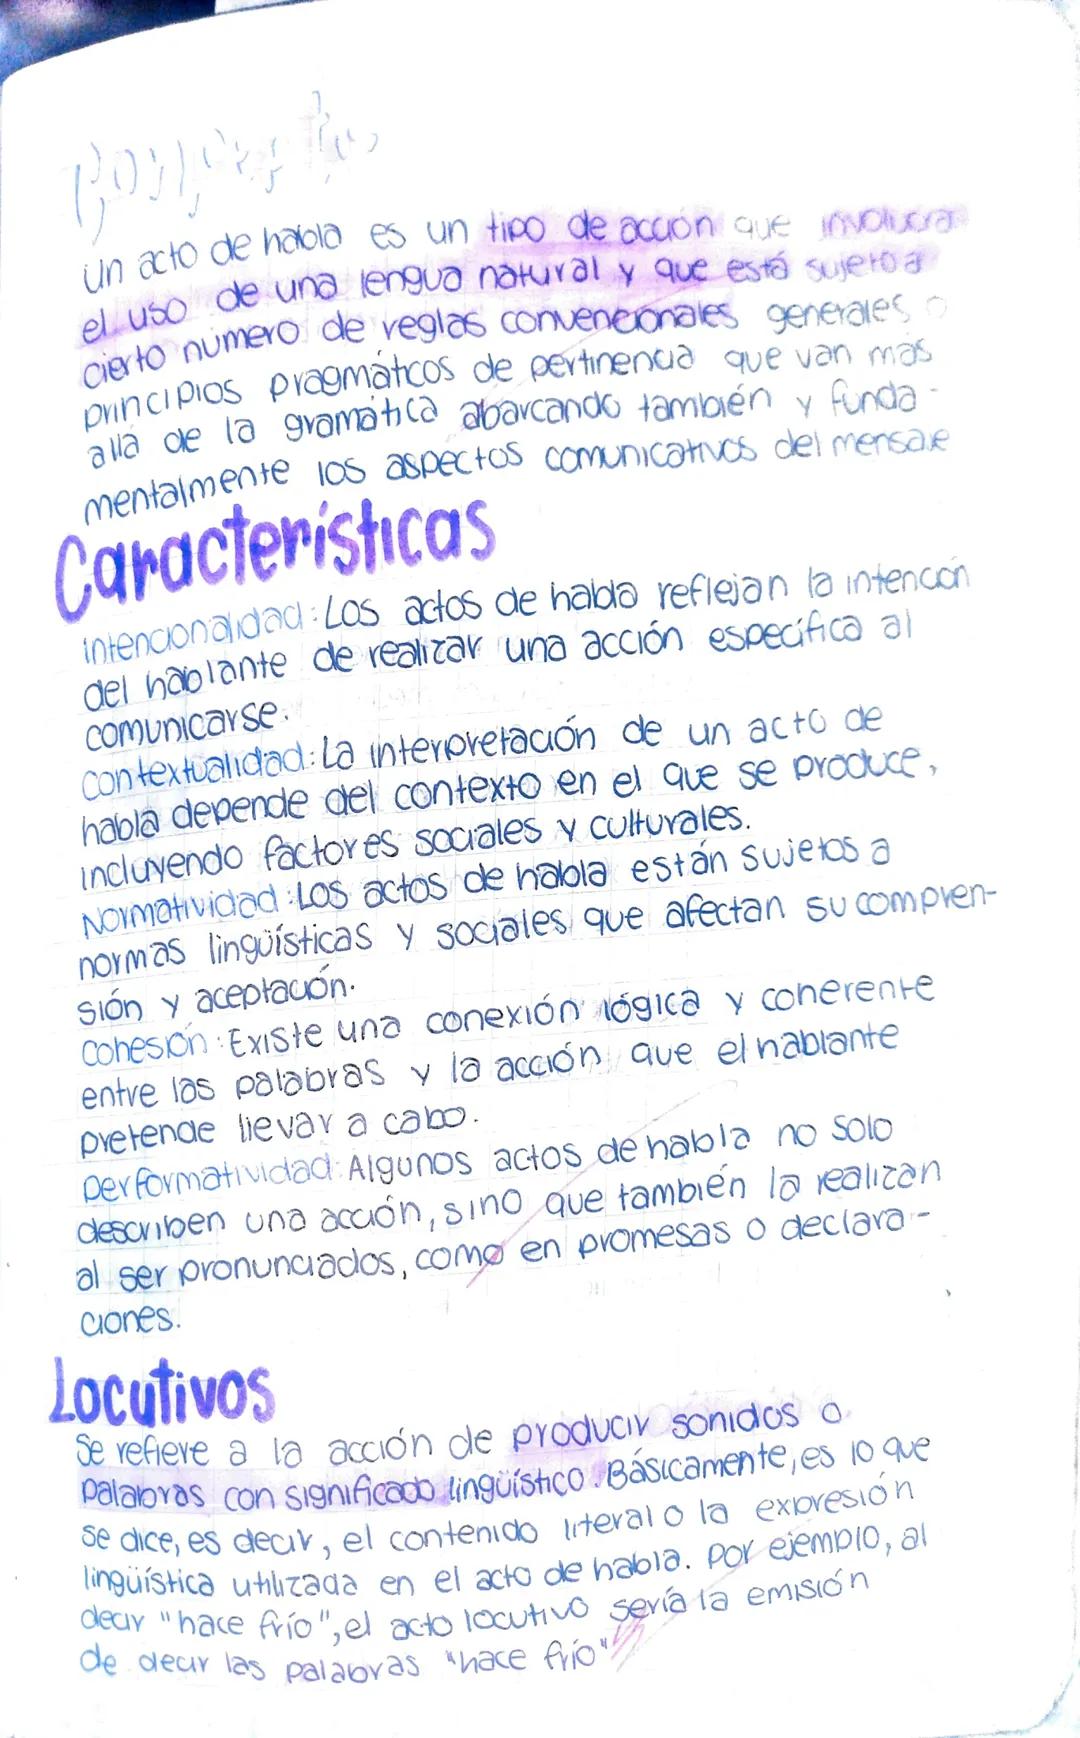 un acto de habla es un tipo de acción que involucra
el uso de una lengua natural y que está sujeto a
cierto número de reglas convencionales generales o
principios pragmáticos de pertinencia que van mas
allá de la gramática abarcando también y funda-
mentalmente los aspectos comunicativos del mensaje
Características
intencionalidad: Los actos de habla reflejan la intención
del hablante de realizar una acción especifica al
comunicarse.
contextualidad: La interpretación de un acto de
habla depende del contexto en el que se produce,
incluyendo factores sociales y culturales.
Normatividad: Los actos de habla están sujetos a
normas lingüísticas y sociales que afectan su compren-
sión y aceptación.
cohesión: Existe una conexión lógica y coherente
entre las palabras y la acción que el hablante
pretende llevar a cabo.
performatividad: Algunos actos de habla no solo
describen una acción, sino que también la realizan
al ser pronunciados, como en promesas o declara-
ciones.
Locutivos
Se refiere a la acción de producir sonidos o
palabras con significado lingüístico. Básicamente, es lo que
se dice, es decir, el contenido literal o la expresión
lingüística utilizada en el acto de habla. Por ejemplo, al
decir "hace frío", el acto locutivo sería la emisión
de decir las palabras "hace frío"